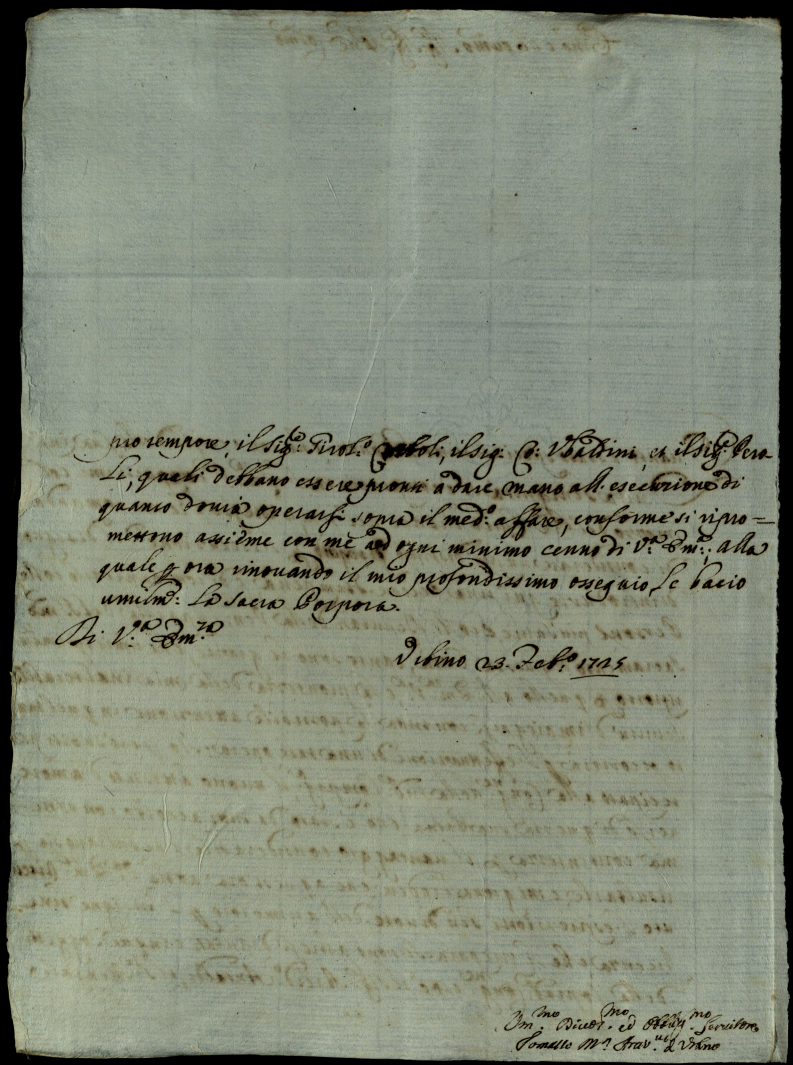 pro tempore, il Sig.r Girol.o il Sig. C. Vbaldini, et il Sig.r
li, quali debbano essere pronti a dare mano all'esecuzione di
quanto dovrà operarsi sopra il med.o affare, conforme si ripro=
mettono assieme con me ad ogni minimo cenno di V.ra Em.za alla
quale p ora rinouando il mio profondissimo ossequio, le bacio
umilm.e La Sacra Porpora.
Di V.ra Em.za
Vrbino 23. Feb.o 1725
Vm.mo Diuot.mo ed Obblig.mo Servitore
Tomasso M.a d'Vrbino